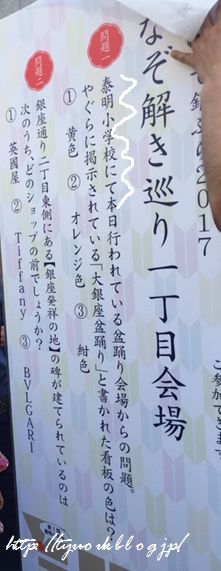 ぶら2017
なぞ解き巡り一丁目会場
問題一
泰明小学校にて本日行われている盆踊り会場からの問題。
やぐらに掲示されている「大銀座盆踊り」と書かれた看板の色は?
① 黄色 ② オレンジ色 ③ 紺色
問題二
銀座通り二丁目東側にある【銀座発祥の地】の碑が建てられているのは
次のうち、どのショップの前でしょうか?
① 英國屋 ② Tiffany ③ BVLGARI
http://tywork.blog.jp/